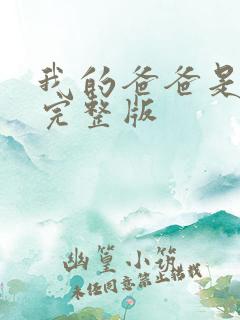 我的爸爸是
完整版
幽篁小筑
未经同意禁止搭载